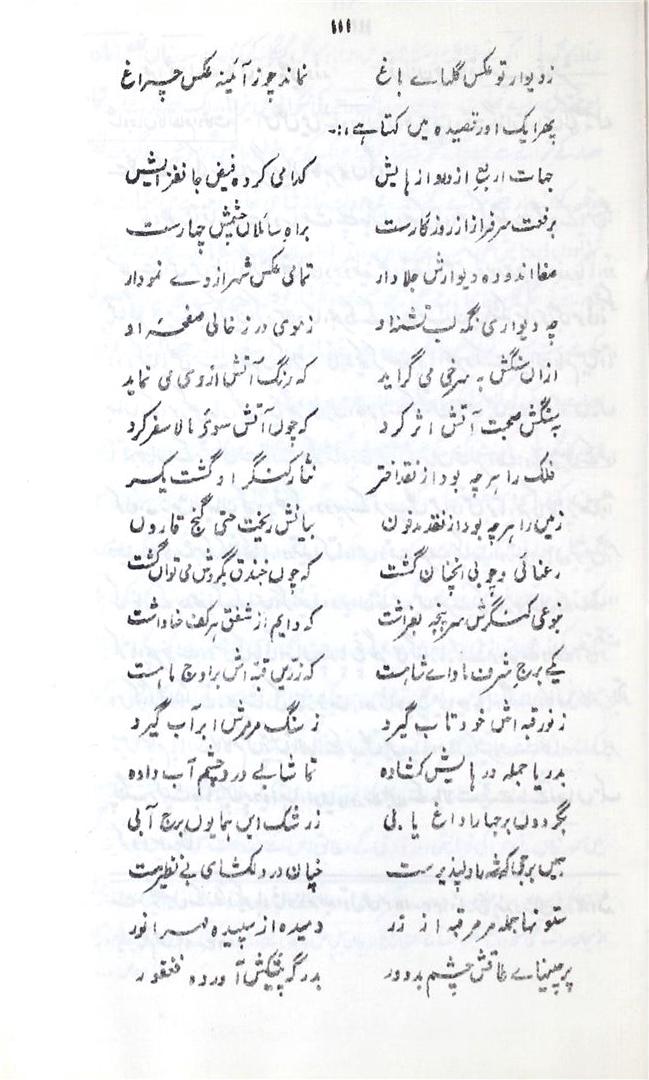 ۱۱۱
ز دیوار تو عکس گلہاے باغ نماند چو از آئینہ عکس چراغ
پھر ایک اور قصیدہ میں کہتا ہے :۔
جہات اربع از دیوار ہایش گدامی کردہ فیض جانفزایش
برفعت سرفراز از روزگارست براہ سالمان چارست
صفا اندودہ دیوارش جلا دار تمامی عکس شہر از وے نمودار
چہ دیواری نگہ لب تشنہ او ز موی درز خالی صفحہ او
ازان سنگش بہ سرخی می گراید کہ رنگ آتش از وی می نماید
بسنگش صحبت آتش اثر کرد کہ چون آتش سوی بالا سفر کرد
فلک را ہرچہ بود از نقد اختر نثار کنگر او گشت یکسر
زمین را ہرچہ بود از نقد مدفون بپایش ریخت حتی گنج قارون
رعنائی و خوبی آنچنان گشت کہ چون خندق بگردش می توان گشت
کنگرش سرپنجہ افراشت کہ دایم از شفق بر کف حنا داشت
یکے برج شرف ماواے شاہست کہ زرین قبہ اش بر اوج ماہست
ز نور قبہ اش خور تاب گیرد ز سنگ مرمرش ابر آب گیرد
بدریا جملہ درہایش کشادہ تماشائے در و چشم آب دادہ
بگردون برجہا را داغ یابی ز رشک این ہمایون برج آبی
برجی کہ شہ را دلپذیرست چنان در دلکشای بے نظیرست
ستونہا جملہ مرمر قبہ از زر دمیدہ از سپیدہ مہر انور
پر چینیاے طاقش چشم بد دور بدرگہ پیشکش آوردہ فغفور